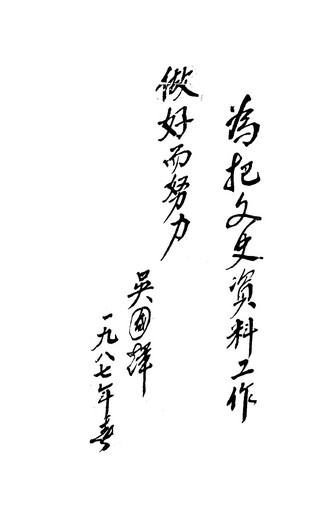 為把文史資料工作
做好而努力
吳国輝
一九八七年春